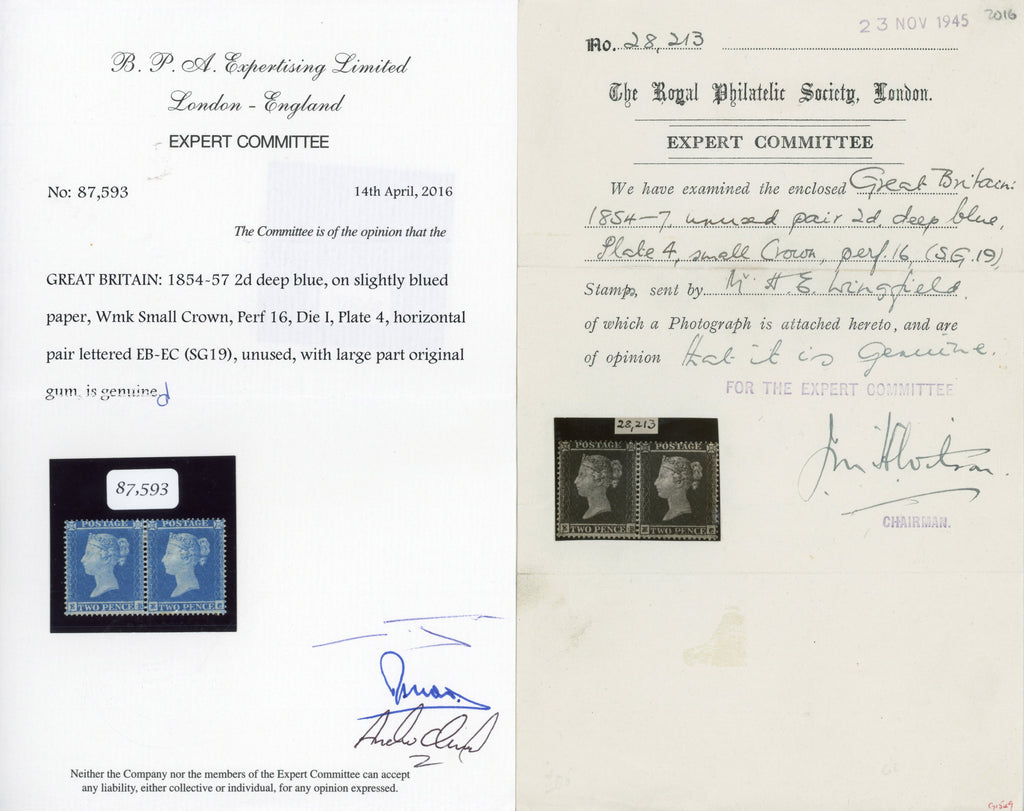 B. P. A. Expertising Limited
London - England
EXPERT COMMITTEE
No: 87,593 14th April, 2016
The Committee is of the opinion that the
GREAT BRITAIN: 1854-57 2d deep blue, on slightly blued
paper, Wmk Small Crown, Perf 16, Die I, Plate 4, horizontal
pair lettered EB-EC (SG19), unused, with large part original
gum, is genuine
87,593
POSTAGE POSTAGE
E TWO PENCE B E TWO PENCE C
Neither the Company nor the members of the Expert Committee can accept
any liability, either collective or individual, for any opinion expressed.
23 NOV 1945 2016
No. 28,213
The Royal Philatelic Society, London.
EXPERT COMMITTEE
We have examined the enclosed Great Britain:
1854-7, unused pair 2d. deep blue,
Plate 4, small Crown, perf. 16, (S.G. 19)
Stamps, sent by Mr H. E. Wingfield.
of which a Photograph is attached hereto, and are
of opinion that it is Genuine.
FOR THE EXPERT COMMITTEE
28,213
POSTAGE POSTAGE
E TWO PENCE B E TWO PENCE C
CHAIRMAN.